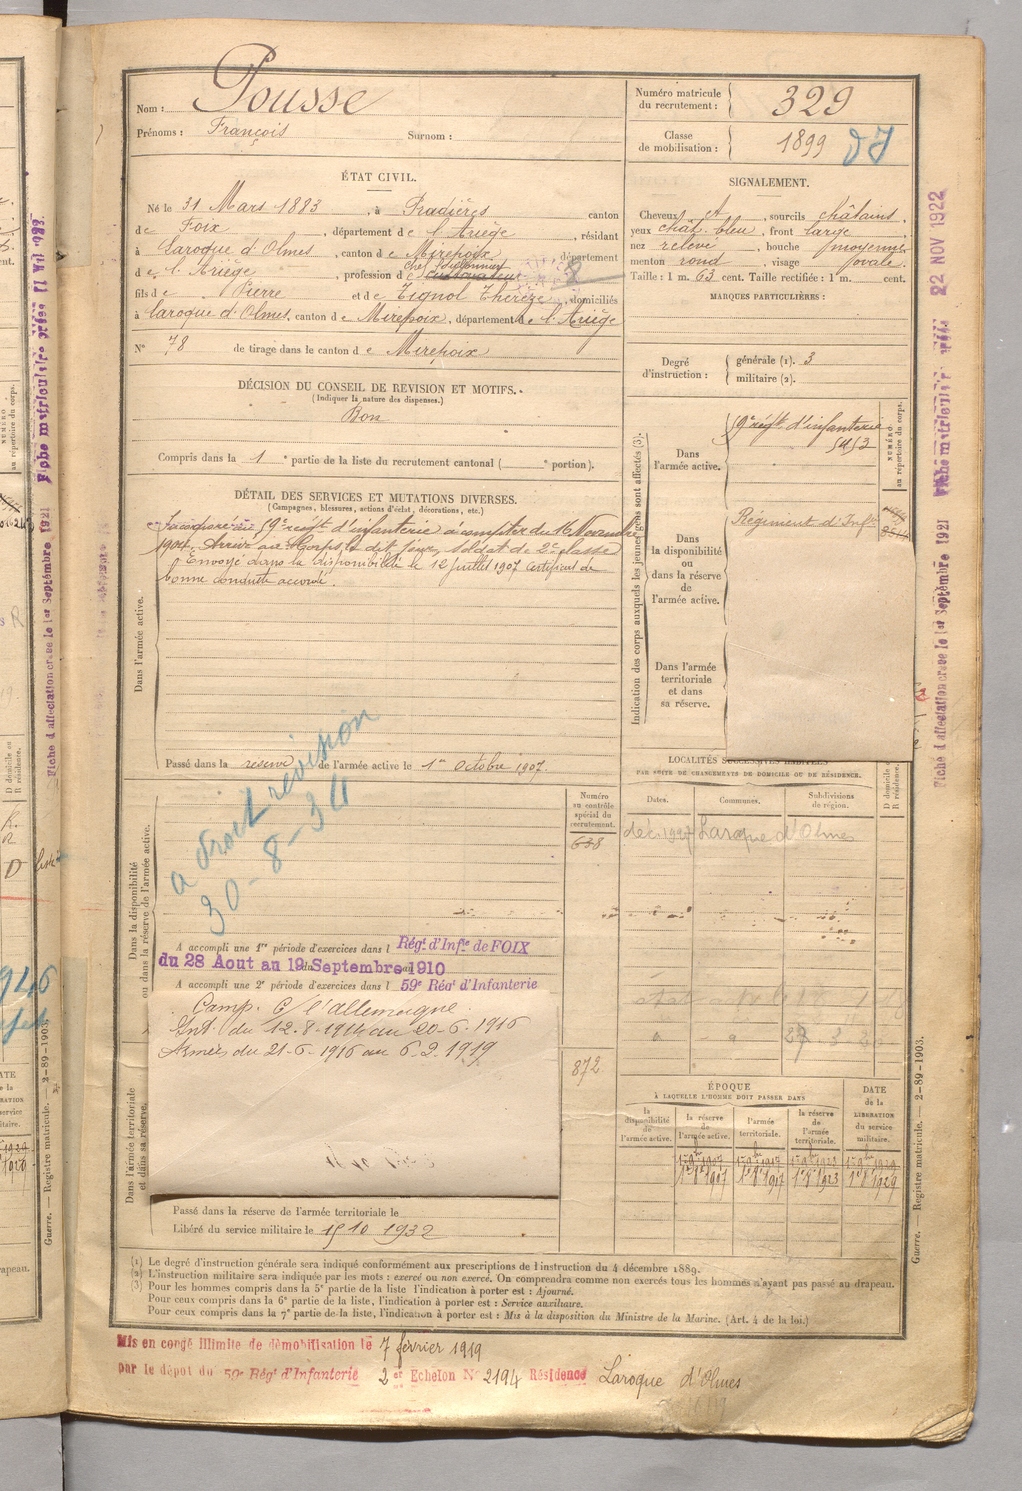 Nom : Pousse
Prénoms : François Surnom :
Numéro matricule du recrutement : 329
Classe de mobilisation : 1899
ÉTAT CIVIL.
Né le 31 Mars 1883, à Pradières canton
de Foix, département de l'Ariège, résidant
à Laroque d'Olmes, canton de Mirepoix département
de l'Ariège, profession de cultivateur
fils de Pierre et de Tignol Thérèze, domiciliés
à Laroque d'Olmes, canton de Mirepoix, département de l'Ariège
N° 78 de tirage dans le canton de Mirepoix
SIGNALEMENT.
Cheveux et, sourcils châtains,
yeux chât. bleu, front large
nez relevé, bouche moyenne
menton rond, visage ovale.
Taille : 1 m. 63 cent. Taille rectifiée : 1 m. cent.
MARQUES PARTICULIÈRES :
Degré d'instruction : générale (1). 3
militaire (2).
DÉCISION DU CONSEIL DE REVISION ET MOTIFS.
(Indiquer la nature des dispenses.)
Bon
Compris dans la 1 e partie de la liste du recrutement cantonal ( e portion).
DÉTAIL DES SERVICES ET MUTATIONS DIVERSES.
(Campagnes, blessures, actions d'éclat, décorations, etc.)
Incorporé au 59e régt d'infanterie à compter du 16 Novembre
1904. Arrivé au Corps le dit jour, soldat de 2e classe
Envoyé dans la disponibilité le 12 juillet 1907 Certificat de
bonne conduite accordé.
Dans l'armée active.
Passé dans la réserve de l'armée active le 1er Octobre 1907.
Indication des corps auxquels les jeunes gens sont affectés (3).
NUMÉRO
au répertoire du corps.
Dans
l'armée active.
59e régt d'infanterie
5452
Dans
la disponibilité
ou
dans la réserve
de
l'armée active.
Régiment d'Infie
Dans l'armée
territoriale
et dans
sa réserve.
LOCALITÉS SUCCESSIVES HABITÉES
PAR SUITE DE CHANGEMENTS DE DOMICILE OU DE RÉSIDENCE.
Dates. Communes. Subdivisions de région. D domicile ou R résidence.
déc. 1927 Laroque d'Olmes
Dans la disponibilité
ou dans la réserve de l'armée active.
Numéro
au contrôle
spécial du
recrutement.
638
a droit révision
30-8-34
A accompli une 1re période d'exercices dans l Régt d'Infie de FOIX
du 28 Aout au 19 Septembre 1910
A accompli une 2e période d'exercices dans l 59e Régt d'Infanterie
Camp. C/ l'allemagne
Int. du 12-8-1914 au 20-6-1916
Armées du 21-6-1916 au 6-2-1919
872
Dans l'armée territoriale
et dans sa réserve.
ÉPOQUE
À LAQUELLE L'HOMME DOIT PASSER DANS
la disponibilité de l'armée active.
la réserve de l'armée active.
l'armée territoriale.
la réserve de l'armée territoriale.
DATE de la LIBERATION du service militaire.
Passé dans la réserve de l'armée territoriale le
Libéré du service militaire le 15 10 1932
(1) Le degré d'instruction générale sera indiqué conformément aux prescriptions de l'instruction du 4 décembre 1889.
(2) L'instruction militaire sera indiquée par les mots : exercé ou non exercé. On comprendra comme non exercés tous les hommes n'ayant pas passé au drapeau.
(3) Pour les hommes compris dans la 5e partie de la liste l'indication à porter est : Ajourné.
Pour ceux compris dans la 6e partie de la liste, l'indication à porter est : Service auxiliaire.
Pour ceux compris dans la 7e partie de la liste, l'indication à porter est : Mis à la disposition du Ministre de la Marine. (Art. 4 de la loi.)
Mis en congé illimité de démobilisation le 7 février 1919
par le dépôt du 59e Régt d'Infanterie 2e Echelon No 2194 Résidence Laroque d'Olmes
Guerre. — Registre matricule. — 2-89-1903.
Fiche d'affectation créée le 1er Septembre 1921
22 NOV 1922